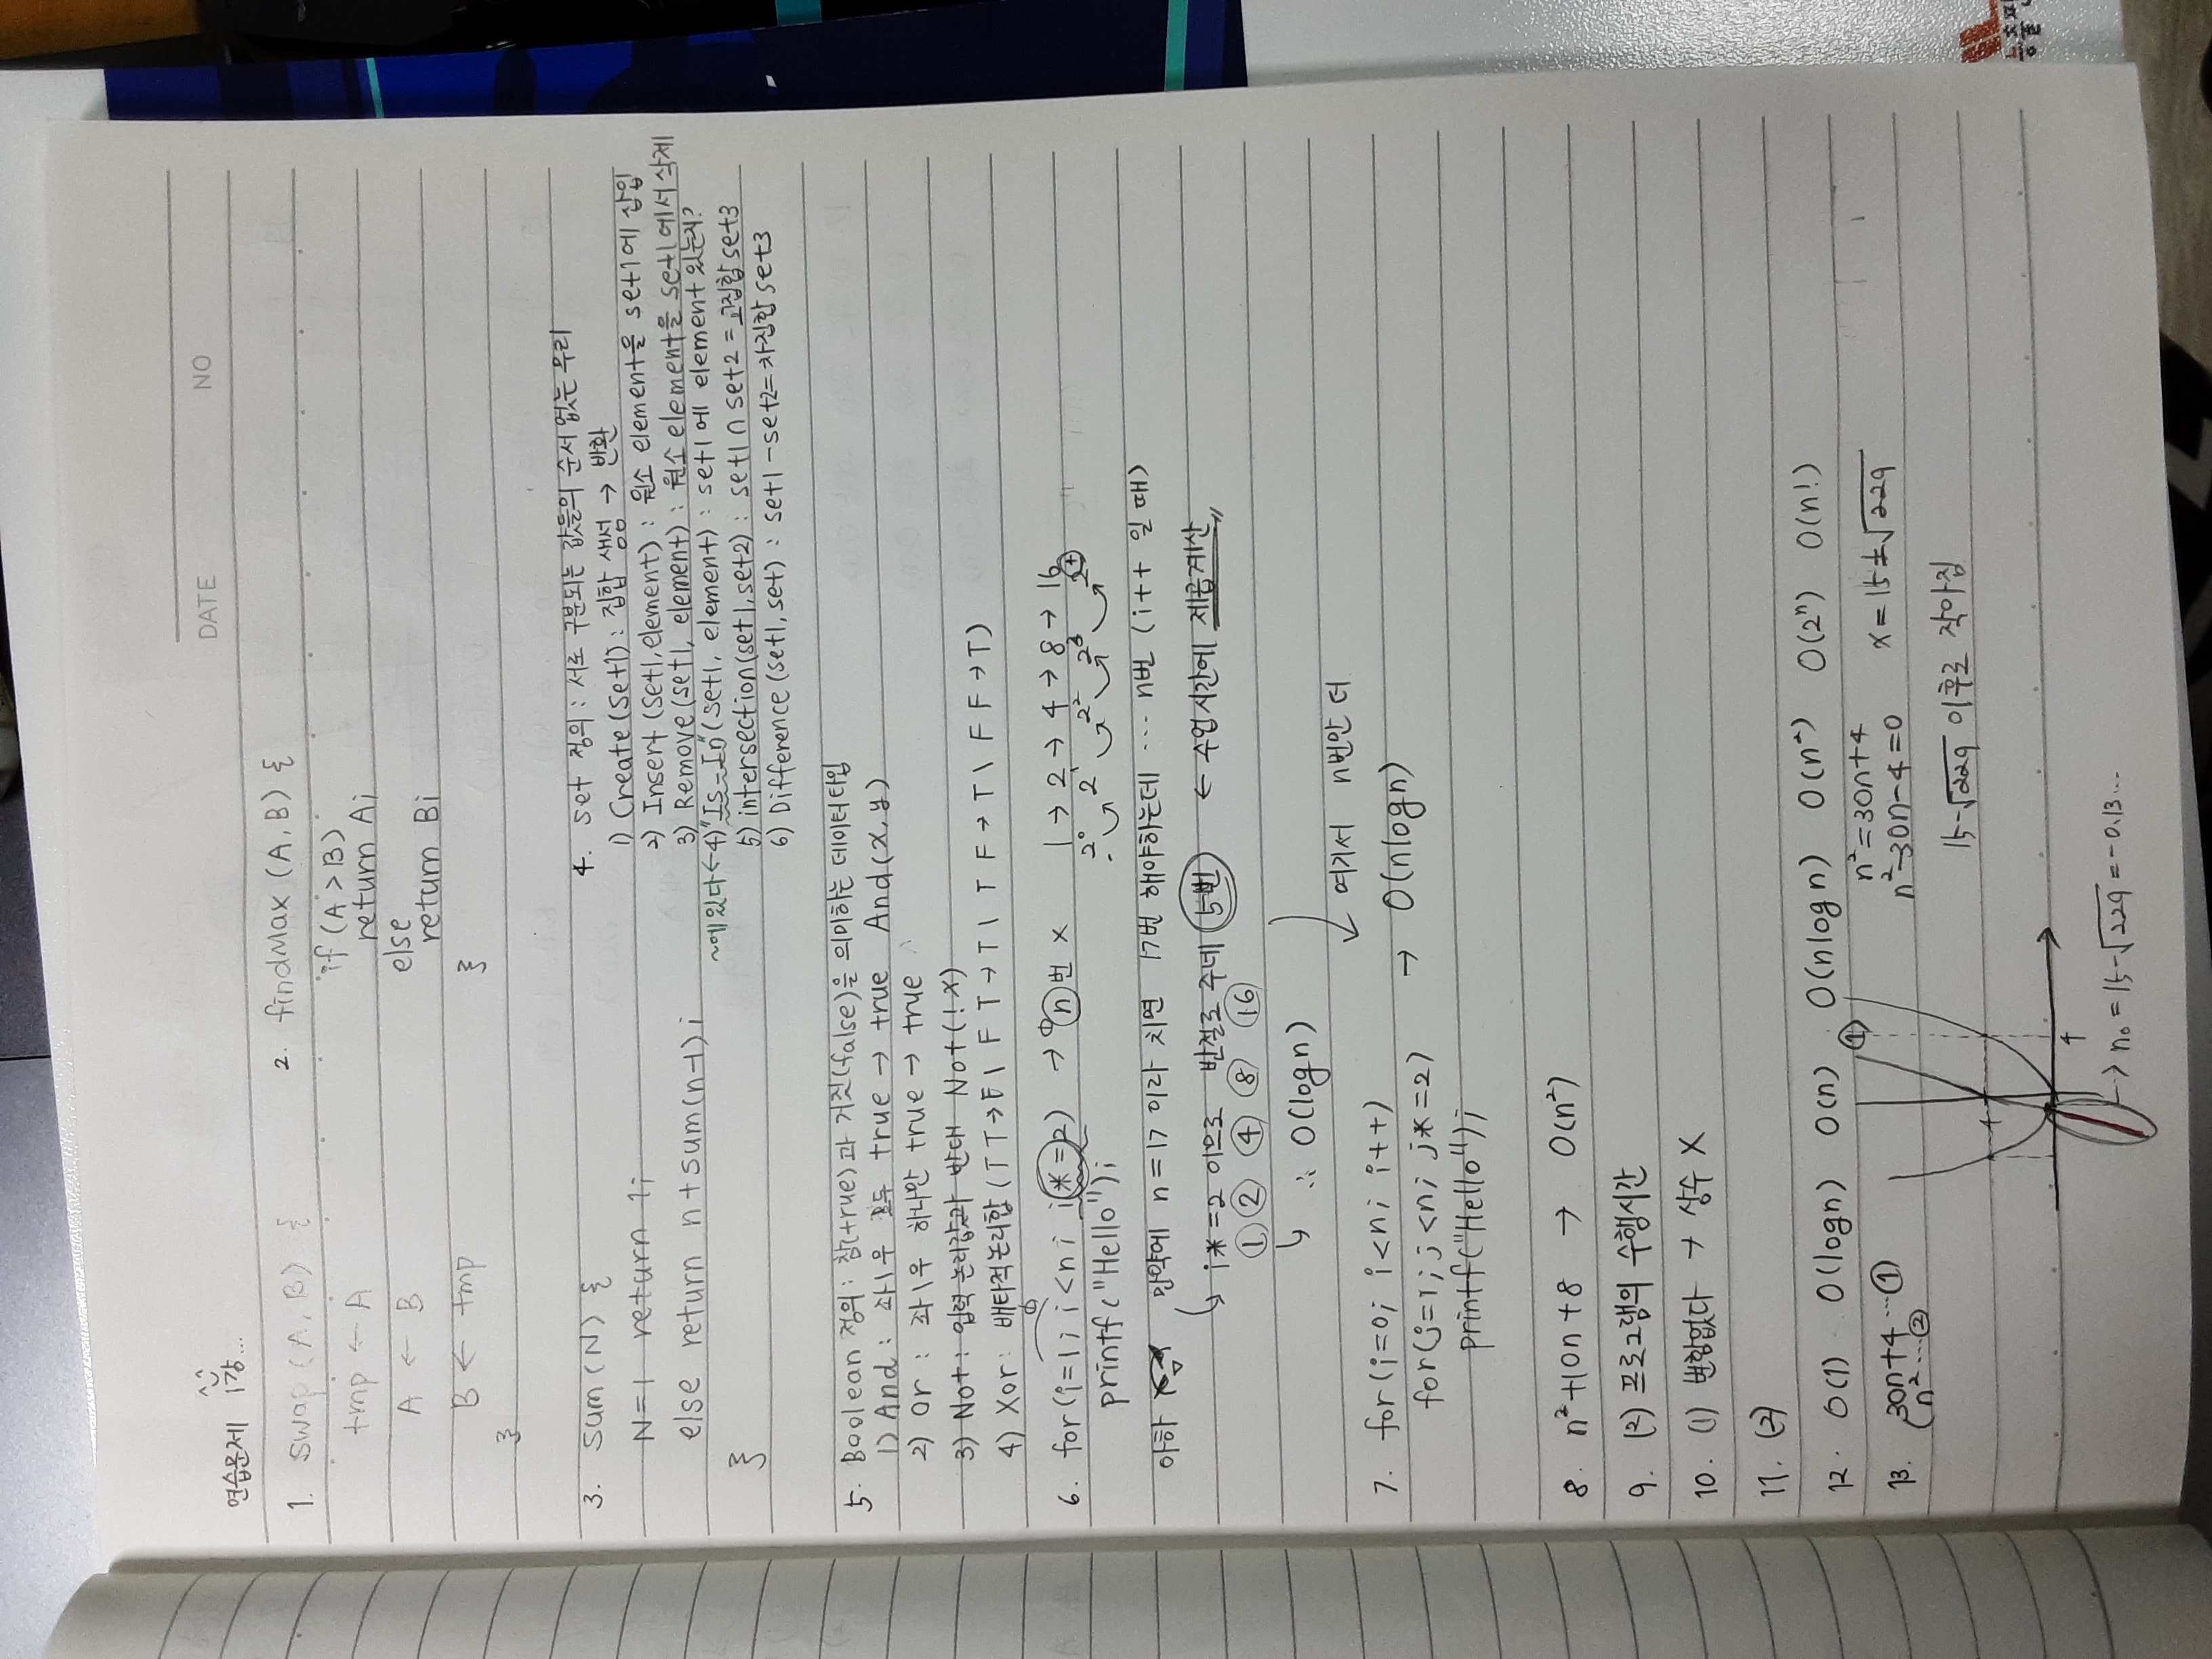 DATE NO
연습문제 1강...
1. swap(A, B) {
tmp ← A
A ← B
B ← tmp
}
2. findMax (A, B) {
if (A > B)
return A;
else
return B;
}
3. sum(N) {
N=1 return 1;
else return n+sum(n-1);
}
4. set 정의 : 서로 구분되는 값들의 순서 없는 무리
1) Create(Set1) : 집합 생성 → 반환
2) Insert (Set1, element) : 원소 element을 set1에 삽입
3) Remove(set1, element) : 원소 element을 set1에서 삭제
~에 있다 ← 4) "Is-In"(set1, element) : set1에 element 있는지?
5) intersection(set1, set2) : set1 ∩ set2 = 교집합 set3
6) Difference(set1, set) : set1 - set2 = 차집합 set3
5. Boolean 정의 : 참(true)과 거짓(false)을 의미하는 데이터타입
1) And : 좌\우 모두 true → true And(x, y)
2) or : 좌\우 하나만 true → true
3) Not : 입력 논리값과 반대 Not(!x)
4) Xor : 배타적논리합 (T T→F \ F T→T \ T F→T \ F F→T)
6. for(i=1; i<n; i*=2) → n번 x 1 → 2 → 4 → 8 → 16
2⁰ 2¹ 2² 2³ 2⁴
printf("Hello");
아하 만약에 n=17 이라 치면 17번 해야하는데 ... n번 (i++ 일 때)
i*=2 이므로 반절로 주네 5번 ← 수업시간에 제곱계산
① ② ④ ⑧ ⑯
∴ O(logn)
여기서 n번만 더
7. for(i=0; i<n; i++)
for(j=1; j<n; j*=2) → O(nlogn)
printf("Hello");
8. n²+10n+8 → O(n²)
9. (2) 프로그램의 수행시간
10. (1) 변함없다 → 상수 X
11. (2)
12. O(1) O(logn) O(n) O(nlogn) O(n²) O(2ⁿ) O(n!)
13. 30n+4 ... ①
n² ... ②
①
4
4
n²=30n+4
n²-30n-4=0 x=15±√229
15-√229 이후로 작아짐
→ n₀ = 15-√229 = -0.13...